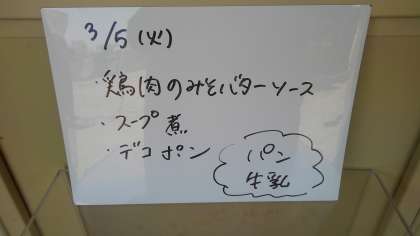 3/5(火)
・鶏肉のみそバターソース
・スープ煮
・デコポン
パン
牛乳